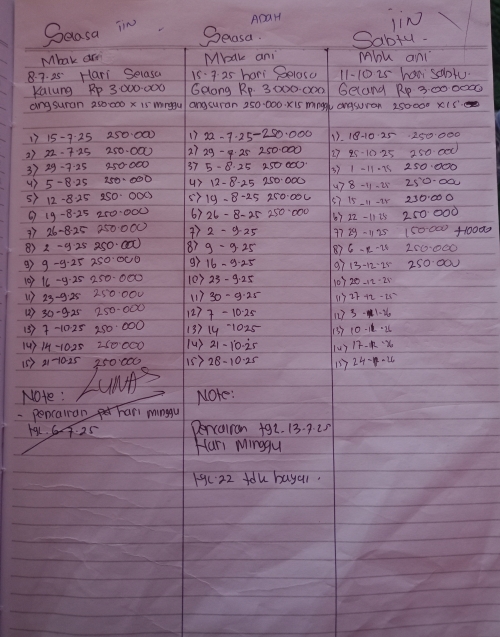 Selasa JIN
Mbak ani
8-7.25 Hari Selasa
Kalung Rp 3.000.000
angsuran 250.000 x 15 minggu
1) 15-7-25 250.000
2) 22-7.25 250.000
3) 29-7.25 250.000
4) 5-8.25 250.000
5) 12-8.25 250.000
6) 19-8.25 250.000
7) 26-8.25 250.000
8) 2-9.25 250.000
9) 9-9.25 250.000
10) 16-9.25 250.000
11) 23-9.25 250.000
12) 30-9.25 250.000
13) 7-10.25 250.000
14) 14-10.25 250.000
15) 21-10.25 250.000
LUNAS
Note:
- Pencairan hari minggu
tgl. 6-7.25
ADAH
Selasa.
Mbak ani
15-7.25 hari Selasa
Gelang Rp. 3.000.000
angsuran 250.000 x 15 minggu
1) 22-7.25-250.000
2) 29-7.25 250.000
3) 5-8.25 250.000
4) 12-8.25 250.000
5) 19-8-25 250.000
6) 26-8-25 250.000
7) 2-9.25
8) 9-9.25
9) 16-9.25
10) 23-9.25
11) 30-9.25
12) 7-10.25
13) 14-10.25
14) 21-10.25
15) 28-10.25
Note:
Pencairan tgl-13-7.25
Hari Minggu
tgl.22 tdk bayar.
JIN
Sabtu.
Mbk ani
11-10.25 hari sabtu.
Gelang Rp 3.000.0000
angsuran 250.000 x 15
1) 18-10.25 250.000
2) 25-10.25 250.000
3) 1-11-25 250.000
4) 8-11-25 250.000
5) 15-11-25 250.000
6) 22-11.25 250.000
7) 29-11.25 150.000 +10000
8) 6-12-25 250.000
9) 13-12.25 250.000
10) 20-12-25
11) 27-12-25
12) 3-1-26
13) 10-1-26
14) 17-1-26
15) 24-1-26